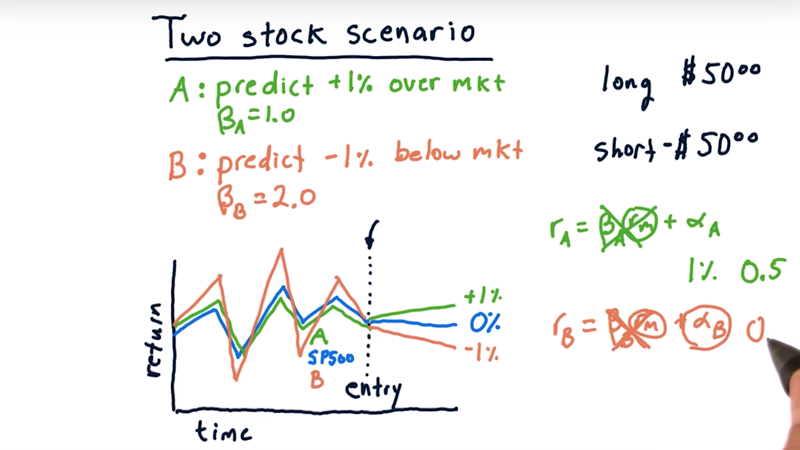 Two stock scenario
A: predict +1% over mkt
βA=1.0
B: predict -1% below mkt
βB=2.0
long $5000
short -$5000
rA = βA rm + αA
1% 0.5
rB = βB rm + αB 0
+1%
0%
-1%
A
SP500
B
entry
return
time